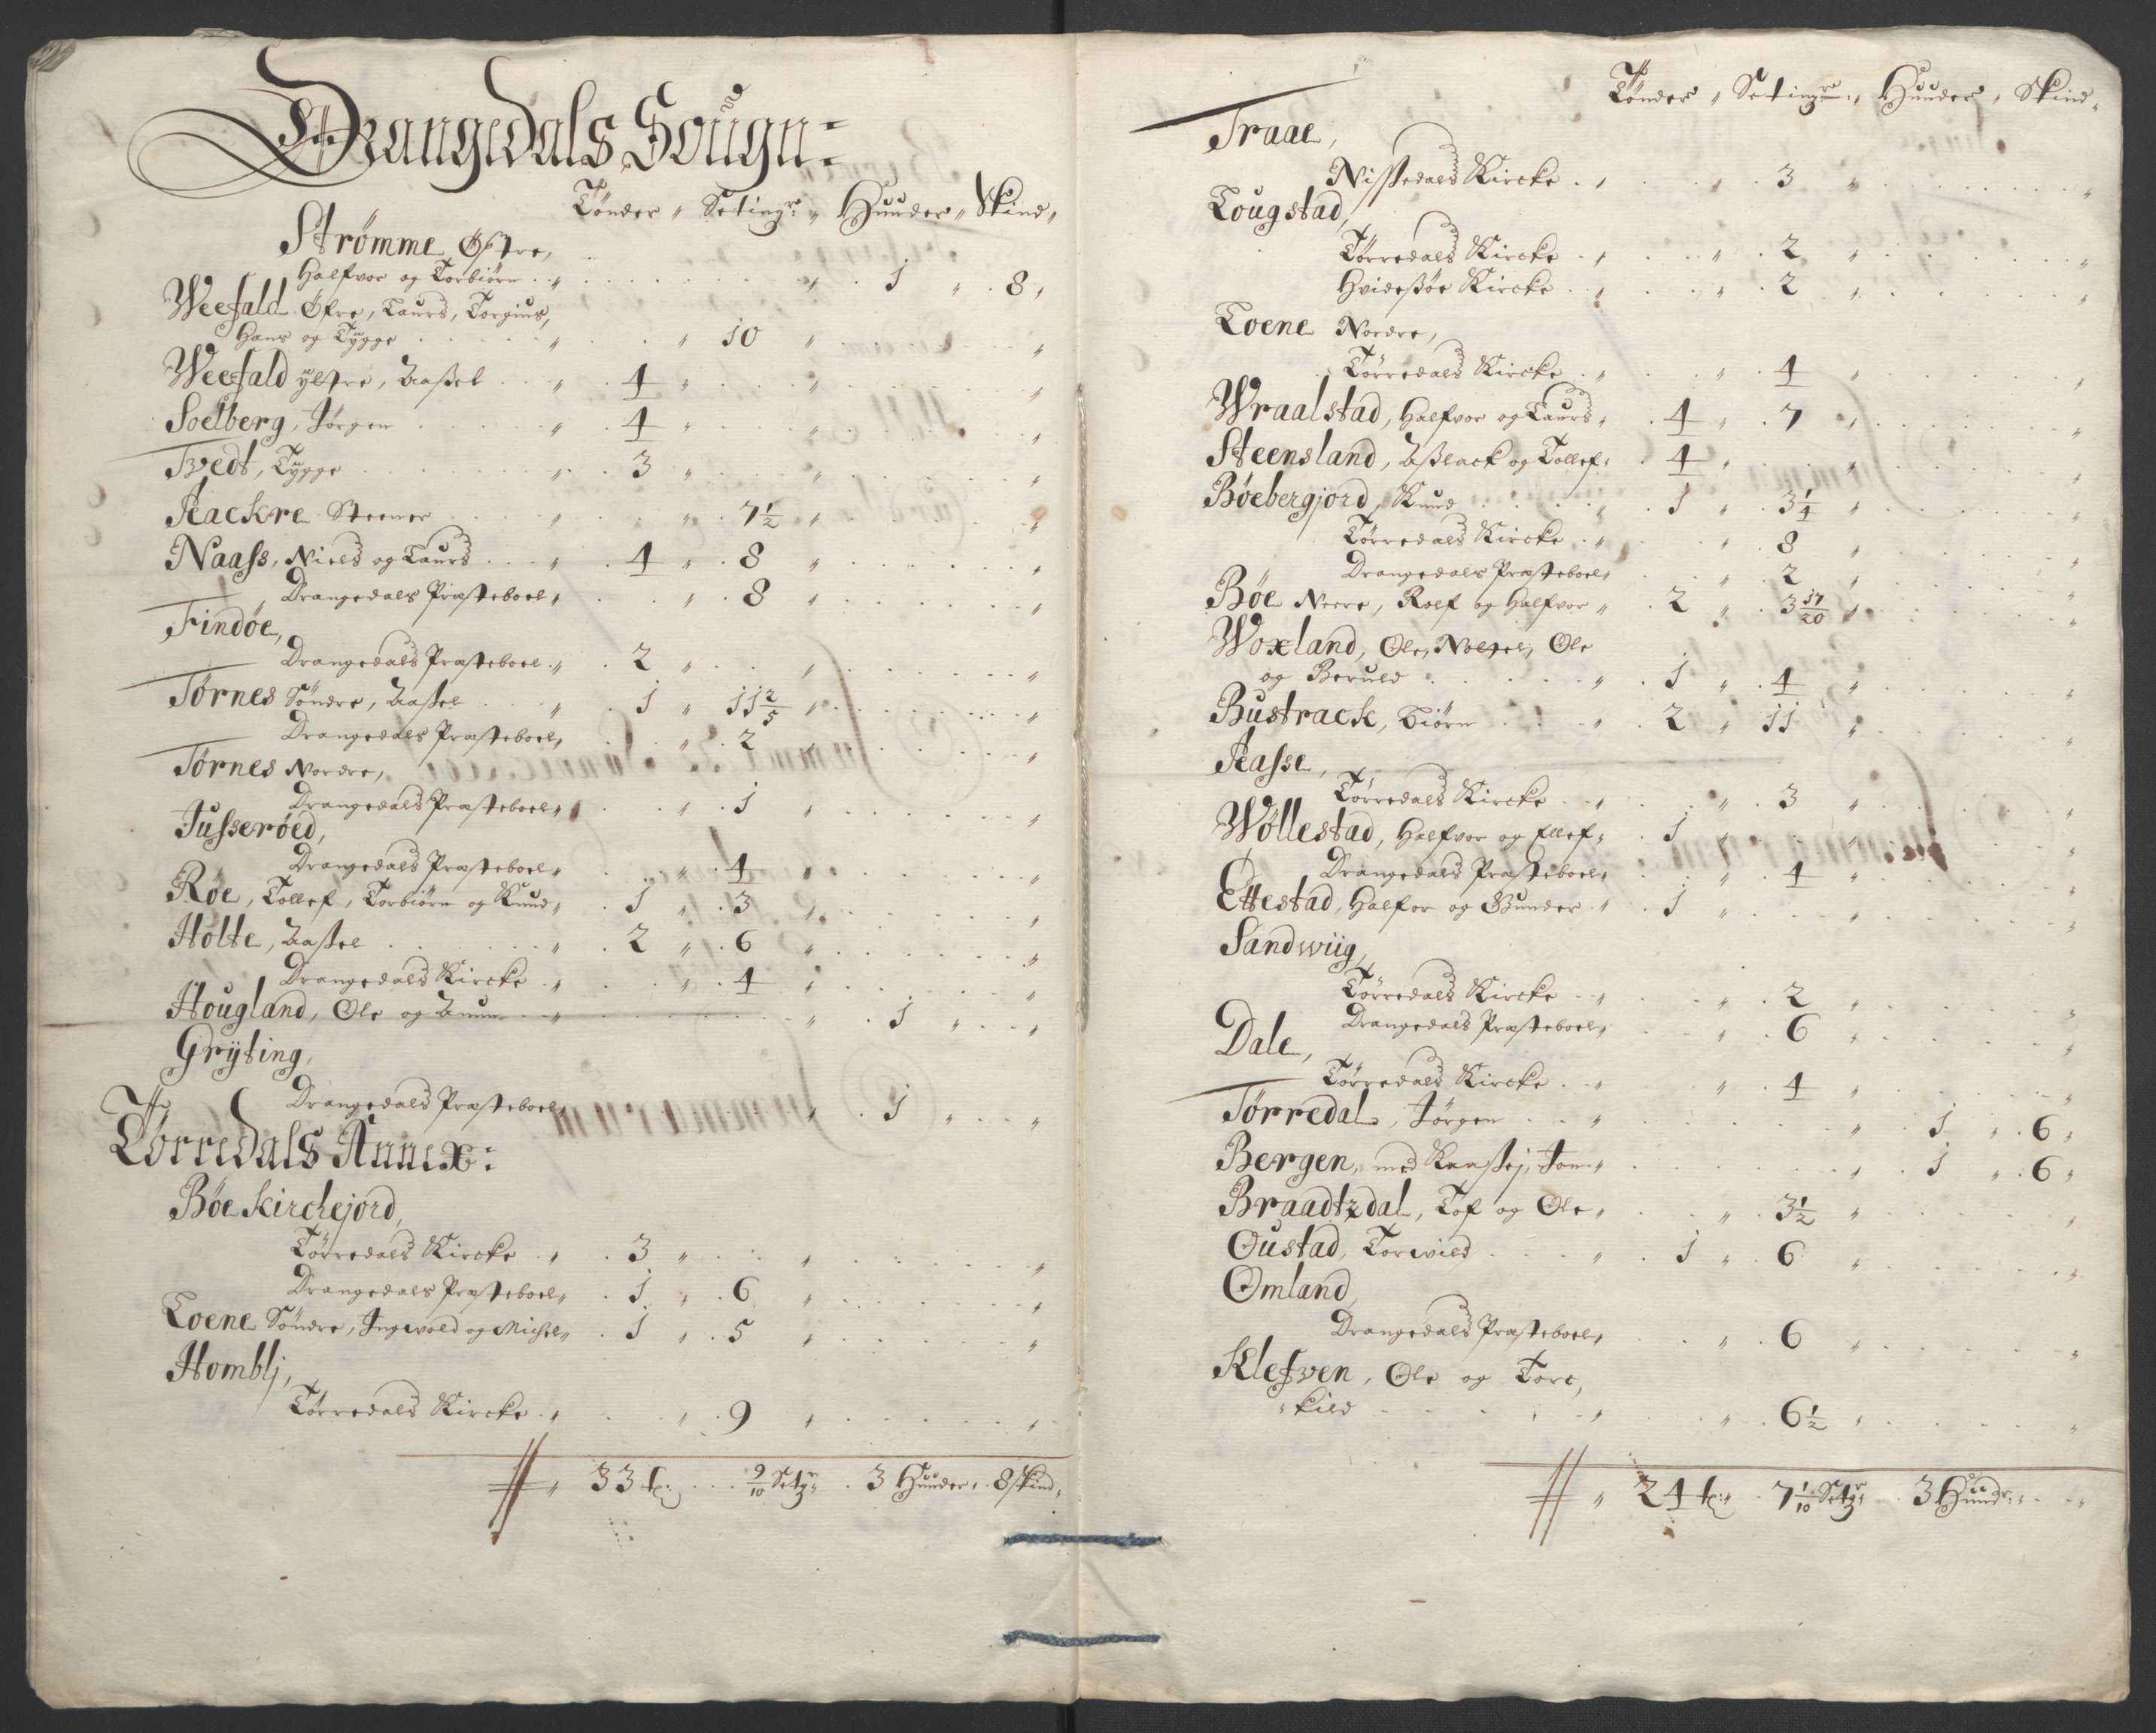 Drangedals Sougn:
Tønder „ Setingr: „ Huuder „ Skind „
Strømme Østre,
Halfvor og Torbiørn „ 1 „ 8 „
Weefald Øfre, Laurs, Torgius,
Hans og Tÿgge „ „ 10 „ „
Weefald ÿtre, Aassel „ 4 „ „ „
Soelberg, Jørgen „ 4 „ „ „
Tvedt, Tÿgge „ 3 „ „ „
Aackre Steener „ „ 7 1/2 „ „
Naass, Niels og Laurs „ 4 „ 8 „ „
Drangedals Præsteboel „ „ 8 „ „
Findøe,
Drangedals Præsteboel „ 2 „ „ „
Tørnes Søndre, Aassel „ 1 „ 11 2/5 „ „
Drangedals Præsteboel „ „ 2 „ „
Tørnes Nordre,
Drangedals Præsteboel „ „ 1 „ „
Jusserøed,
Drangedals Præsteboel „ „ 4 „ „
Røe, Tollef, Torbiørn og Knud „ 1 „ 3 „ „
Holte, Aassel „ 2 „ 6 „ „
Drangedals Kircke „ „ 4 „ „
Hougland, Ole og „ „ 1 „ „
Grÿting,
Drangedals Præsteboel „ „ 1 „ „
Tørredals Annex:
Bøe Kirckejord,
Tørredals Kircke „ 3 „ „ „
Drangedals Præsteboel „ 1 „ 6 „ „
Loene Søndre, Ingwold og Michel „ 1 „ 5 „ „
Homblj,
Tørredals Kircke „ „ 9 „ „
„ 33 t: 9/10 Setgr „ 3 Huuder „ 8 Skind „
Tønder „ Setingr: „ Huuder „ Skind „
Traae,
Nissedals Kircke „ „ 3 „ „
Lougstad,
Tørredals Kircke „ „ 2 „ „
Hvidessøe Kircke „ „ 2 „ „
Loene Nordre,
Tørredals Kircke „ „ 4 „ „
Wraalstad, Halfvor og Laurs „ 4 „ 7 „ „
Steensland, Asslack og Tollef „ 4 „ „ „
Bøebergjord, Knud „ 1 „ 3 1/4 „ „
Tørredals Kircke „ „ 8 „ „
Drangedals Præsteboel „ „ 2 „ „
Bøe Neere, Rolf og Halfvor „ 2 „ 3 17/20 „ „
Woxland, Ole, , Ole
og Beruld „ 1 „ 4 „ „
Bustrack, Biørn „ 2 „ 11 „ „
Aasse,
Tørredals Kircke „ „ 3 „ „
Wøllestad, Halfvor og Ellef „ 1 „ „ „
Drangedals Præsteboel „ „ 4 „ „
Ettestad, Halfor og Gunder „ 1 „ „ „
Sandwiig,
Tørredals Kircke „ „ 2 „ „
Drangedals Præsteboel „ „ 6 „ „
Dale,
Tørredals Kircke „ „ 4 „ „
Tørredal, Jørgen „ „ 1 „ 6 „
Bergen, med , Jon „ „ 1 „ 6 „
Braadtzdal, Tof og Ole „ „ 3 1/2 „ „
Oustad, Torwild „ 1 „ 6 „ „
Omland,
Drangedals Præsteboel „ „ 6 „ „
Klefven, Ole og Torc,
„kild „ „ 6 1/2 „ „
„ 24 t: „ 7 1/10 Setgr 3 Huudr: „